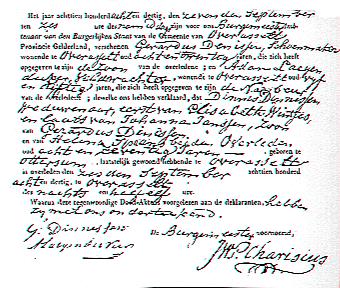 Het jaar achttien honderd acht en dertig, den zevenden September
ten zes ure namiddag zijn voor ons Burgemeester
tenaar van den Burgerlijken Staat van de Gemeente van Overasselt
Provincie Gelderland, verschenen Gerardus Dinnissen, Schoenmaker
wonende te Overasselt, oud achten twintig jaren, die zich heeft
opgegeven te zijn de zoon van den overledene en
wonende te Overasselt oud vijf
en vijftig jaren, die zich heeft opgegeven te zijn de Nagebuur
van de overledene, dewelke ons hebben verklaard, dat Dinnis Dinnissen
Weduwenaar, eerst van Elisabeth
en laatst van Johanna Janssen, Zoon
van Gerardus Dinissen
en Helena beiden Overleden
oud acht en zeventig Jaren geboren te
Ottersum laatstelijk gewoond hebbende te Overasselt
is overleden den zesden September achttien honderd
acht en dertig, te Overasselt
des nachts en half elf ure.
Waarna deze tegenwoordige Dood-Akte is voorgelezen aan de deklaranten, hebben
zij met ons onderteekend.
G: Dinnissen De Burgemeester voornoemd,
Charisius